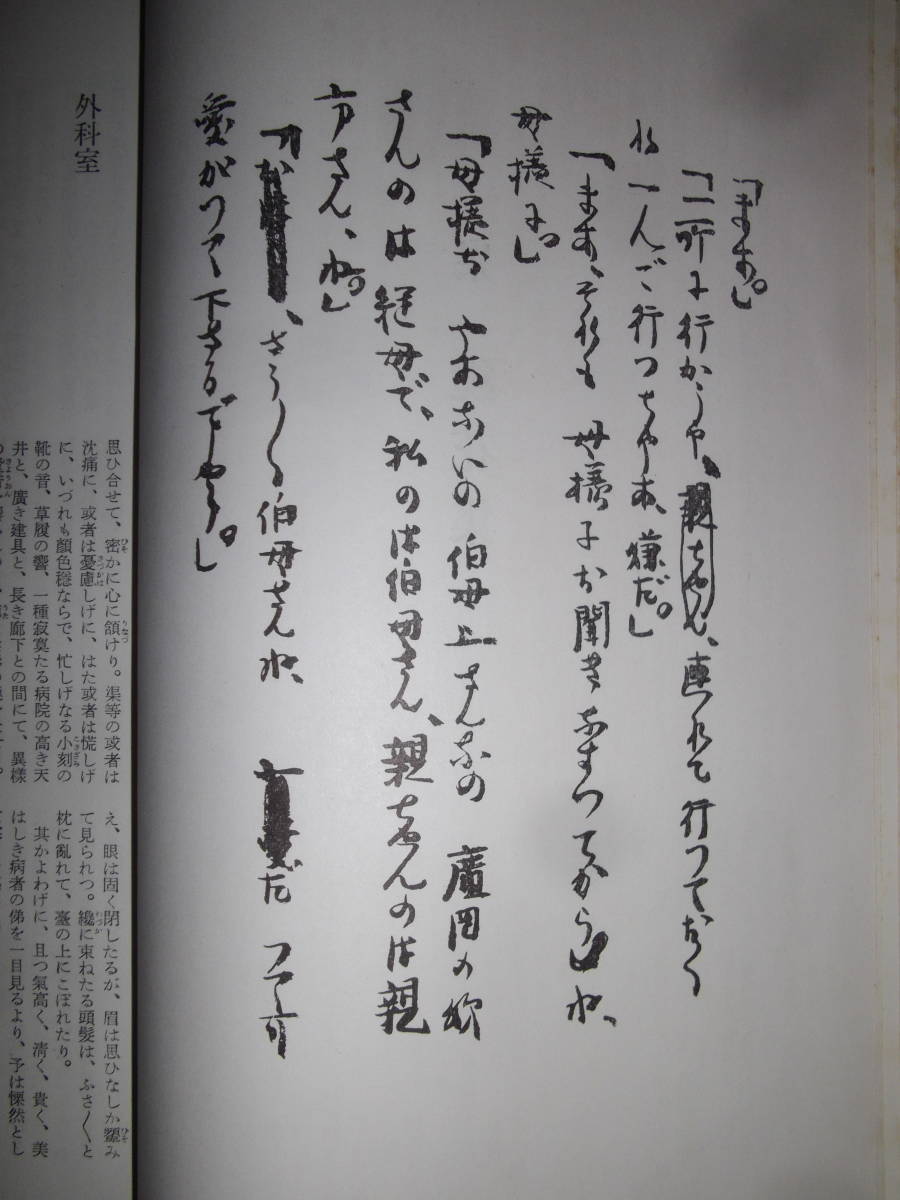 「まあ。」
「一所に行かうや、親ちやん、連れて行つておく
れ一人で行つちや不、嫌だ。」
「まあ、それも 母様にお聞きなすつてから」ね、
母様に。」
「母様お 伯母上さんなの 廣岡の
さんのは 継母で、私のは伯母さん、親ちやんのは親
さん、ね。」
、さう〳〵伯母さんね、 だつて可
愛がつて下さるでせう。」
外科室
思ひ合せて、密かに心に頷けり。渠等の或者は
沈痛に、或者は憂慮しげに、はた或者は慌しげ
に、いづれも顔色穩ならで、忙しげなる小刻の
靴の音、草履の響、一種寂寞たる病院の高き天
井と、廣き建具と、長き廊下との間にて、異樣
え、眼は固く閉したるが、眉は思ひなしか顰み
て見られつ。纔に束ねたる頭髮は、ふさ〳〵と
枕に亂れて、臺の上にこぼれたり。
其かよわげに、且つ氣高く、淸く、貴く、美
はしき病者の俤を一目見るより、予は慄然とし